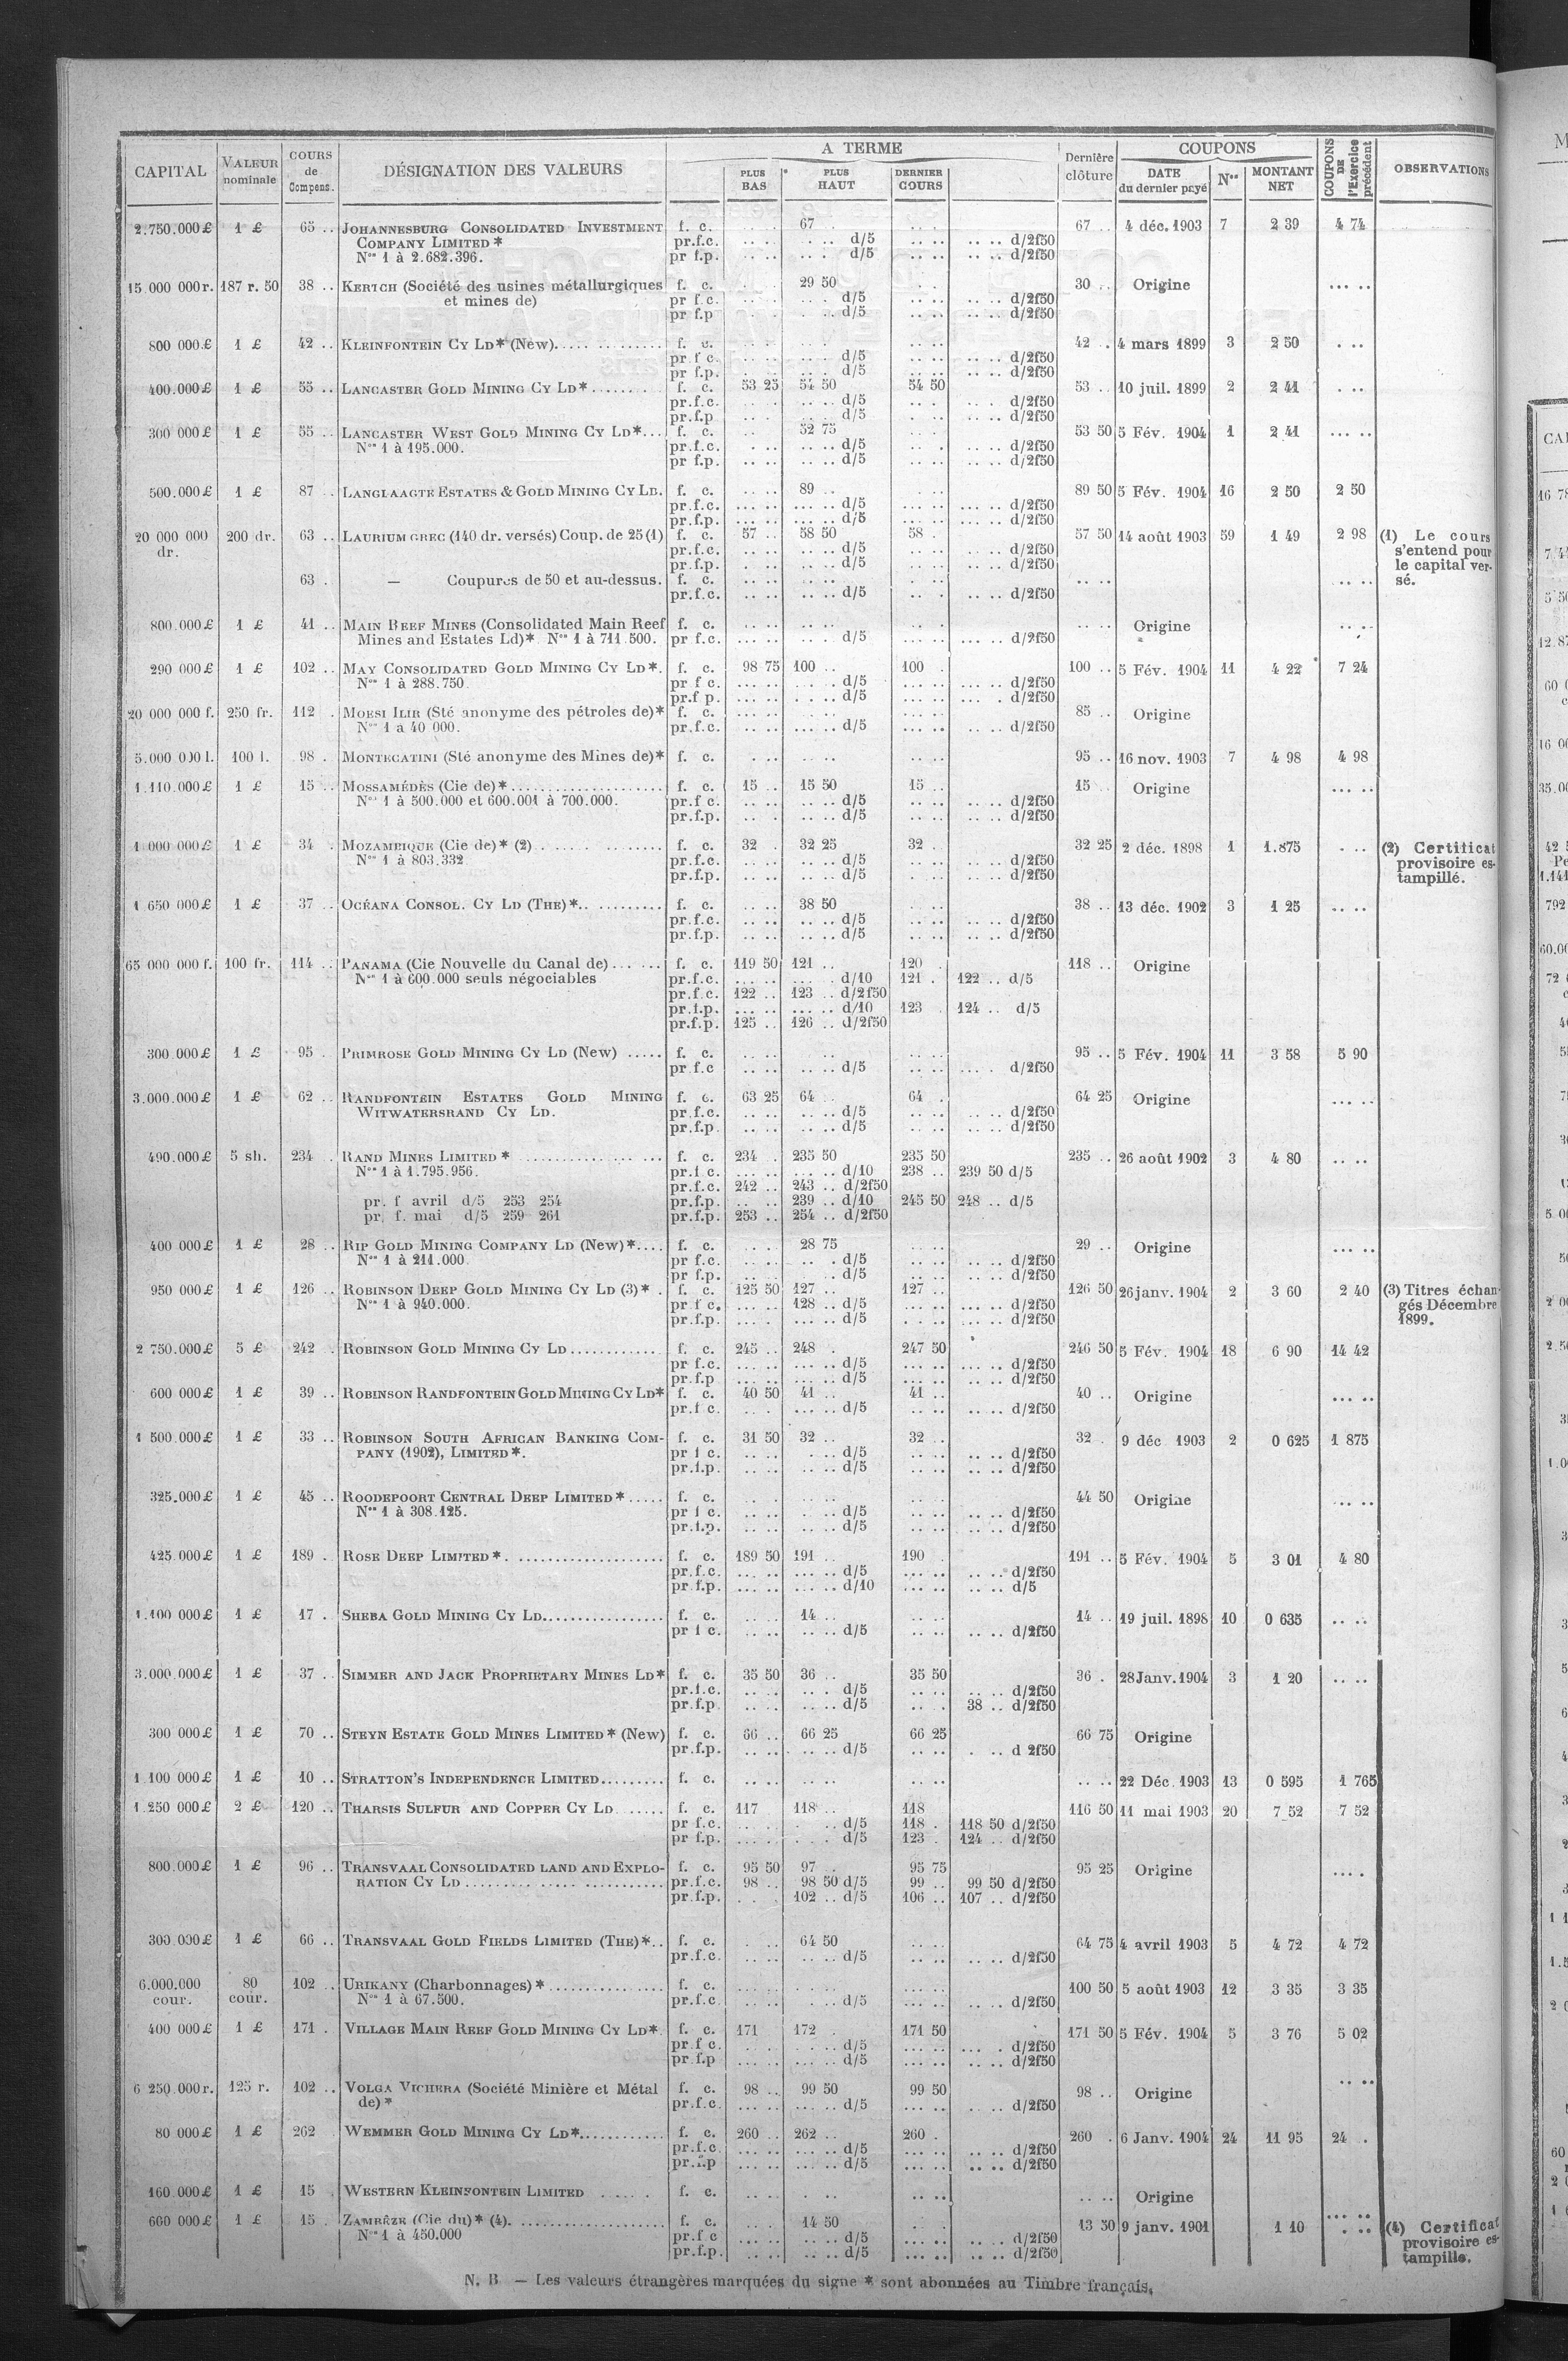 CAPITAL | VALEUR nominale | COURS de Compens. | DÉSIGNATION DES VALEURS | A TERME | PLUS BAS | PLUS HAUT | DERNIER COURS | Dernière clôture | COUPONS | DATE du dernier payé | Nos | MONTANT NET | COUPONS DE l'Exercice précédent | OBSERVATIONS
2.750.000£ 1 £ 65 .. JOHANNESBURG CONSOLIDATED INVESTMENT f. c. 67 . 67 .. 4 déc. 1903 7 2 39 4 74
COMPANY LIMITED * pr.f.c. d/5 d/2f50
Nos 1 à 2.682.396. pr f.p. d/5 d/2f50
15.000 000r. 187 r. 50 38 .. KERTCH (Société des usines métallurgiques f. c. 29 50 30 .. Origine
et mines de) pr f.c. d/5 d/2f50
pr f.p d/5 d/2f50
800 000£ 1 £ 42 .. KLEINFONTEIN CY LD* (New) f. c. 42 . 4 mars 1899 3 2 50
pr f c. d/5 d/2f50
pr f.p. d/5 d/2f50
400.000£ 1 £ 55 .. LANCASTER GOLD MINING CY LD* f. c. 53 25 54 50 54 50 53 .. 10 juil. 1899 2 2 41
pr.f.c. d/5 d/2f50
pr.f.p d/5 d/2f50
300 000£ 1 £ 55 .. LANCASTER WEST GOLD MINING CY LD* f. c. 52 75 53 50 5 Fév. 1904 1 2 41
Nos 1 à 195.000. pr.f.c. d/5 d/2f50
pr f.p. d/5 d/2f50
500.000£ 1 £ 87 .. LANGLAAGTE ESTATES & GOLD MINING CY LD. f. c. 89 .. 89 50 5 Fév. 1904 16 2 50 2 50
pr.f.c. d/5 d/2f50
pr.f.p. d/5 d/2f50
20 000 000 200 dr. 63 .. LAURIUM GREC (140 dr. versés) Coup. de 25 (1) f. c. 57 .. 58 50 58 . 57 50 14 août 1903 59 1 49 2 98 (1) Le cours
dr. pr.f.c. d/5 d/2f50 s'entend pour
pr.f.p. d/5 d/2f50 le capital ver-
63 . — Coupures de 50 et au-dessus. f. c. sé.
pr.f.c. d/5 d/2f50
800.000£ 1 £ 41 .. MAIN REEF MINES (Consolidated Main Reef f. c. Origine
Mines and Estates Ld)* Nos 1 à 711.500. pr f.c. d/5 d/2f50
290 000£ 1 £ 102 .. MAY CONSOLIDATED GOLD MINING CY LD*. f. c. 98 75 100 .. 100 . 100 .. 5 Fév. 1904 11 4 22 7 24
Nos 1 à 288.750. pr f c. d/5 d/2f50
pr.f p. d/5 d/2f50
20 000 000 f. 250 fr. 112 . MOESI ILIR (Sté anonyme des pétroles de)* f. c. 85 .. Origine
Nos 1 à 40 000. pr.f.c. d/5 d/2f50
5.000 000 l. 100 l. 98 . MONTECATINI (Sté anonyme des Mines de)* f. c. 95 .. 16 nov. 1903 7 4 98 4 98
1.110.000£ 1 £ 15 .. MOSSAMÉDÈS (Cie de)* f. c. 15 .. 15 50 15 .. 15 .. Origine
Nos 1 à 500.000 et 600.001 à 700.000. pr.f c. d/5 d/2f50
pr.f.p. d/5 d/2f50
1 000 000£ 1 £ 34 . MOZAMBIQUE (Cie de)* (2) f. c. 32 . 32 25 32 . 32 25 2 déc. 1898 1 1.875 (2) Certificat
Nos 1 à 803.332 pr.f.c. d/5 d/2f50 provisoire es-
pr.f.p. d/5 d/2f50 tampillé.
1 650 000£ 1 £ 37 .. OCÉANA CONSOL. CY LD (THE)* f. c. 38 50 38 .. 13 déc. 1902 3 1 25
pr.f.c. d/5 d/2f50
pr.f.p. d/5 d/2f50
65 000 000 f. 100 fr. 114 .. PANAMA (Cie Nouvelle du Canal de) f. c. 119 50 121 .. 120 . 118 .. Origine
Nos 1 à 600.000 seuls négociables pr.f.c. d/10 121 . 122 .. d/5
pr.f.c. 122 .. 123 .. d/2f50
pr.f.p. d/10 123 . 124 .. d/5
pr.f.p. 125 .. 126 .. d/2f50
300 000£ 1 £ 95 . PRIMROSE GOLD MINING CY LD (New) f. c. 95 .. 5 Fév. 1904 11 3 58 5 90
pr f.c d/5 d/2f50
3.000.000£ 1 £ 62 .. RANDFONTEIN ESTATES GOLD MINING f. c. 63 25 64 .. 64 . 64 25 Origine
WITWATERSRAND CY LD. pr.f.c. d/5 d/2f50
pr.f.p. d/5 d/2f50
490.000£ 5 sh. 234 . RAND MINES LIMITED * f. c. 234 . 235 50 235 50 235 .. 26 août 1902 3 4 80
Nos 1 à 1.795.956. pr.f c. d/10 238 .. 239 50 d/5
pr.f.c. 242 .. 243 .. d/2f50
pr. f avril d/5 253 254 pr.f.p. 239 .. d/10 245 50 248 .. d/5
pr. f. mai d/5 259 261 pr.f.p. 253 .. 254 .. d/2f50
400 000£ 1 £ 28 .. RIP GOLD MINING COMPANY LD (New)* f. c. 28 75 29 .. Origine
Nos 1 à 211.000 pr f.c. d/5 d/2f50
pr f.p. d/5 d/2f50
950 000£ 1 £ 126 .. ROBINSON DEEP GOLD MINING CY LD (3)* . f. c. 125 50 127 .. 127 .. 126 50 26 janv. 1904 2 3 60 2 40 (3) Titres échan-
Nos 1 à 940.000. pr f c. 128 .. d/5 d/2f50 gés Décembre
pr.f.p. d/5 d/2f50 1899.
2 750.000£ 5 £ 242 . ROBINSON GOLD MINING CY LD f. c. 245 .. 248 . 247 50 246 50 5 Fév. 1904 18 6 90 14 42
pr f.c. d/5 d/2f50
pr.f.p d/5 d/2f50
600 000£ 1 £ 39 .. ROBINSON RANDFONTEIN GOLD MINING CY LD* f. c. 40 50 41 .. 41 .. 40 .. Origine
pr.f c. d/5 d/2f50
1 500.000£ 1 £ 33 .. ROBINSON SOUTH AFRICAN BANKING COM- f. c. 31 50 32 .. 32 .. 32 . 9 déc 1903 2 0 625 1 875
PANY (1902), LIMITED *. pr f c. d/5 d/2f50
pr.f.p. d/5 d/2f50
325.000£ 1 £ 45 .. ROODEPOORT CENTRAL DEEP LIMITED * f. c. 44 50 Origine
Nos 1 à 308.125. pr f c. d/5 d/2f50
pr.f.p. d/5 d/2f50
425.000£ 1 £ 189 . ROSE DEEP LIMITED *. f. c. 189 50 191 .. 190 . 191 .. 5 Fév. 1904 5 3 01 4 80
pr.f.c. d/5 d/2f50
pr f.p. d/10 d/5
1.100 000£ 1 £ 17 . SHEBA GOLD MINING CY LD f. c. 14 .. 14 .. 19 juil. 1898 10 0 635
pr f c. d/5 d/2f50
3.000.000£ 1 £ 37 .. SIMMER AND JACK PROPRIETARY MINES LD* f. c. 35 50 36 .. 35 50 36 . 28 Janv. 1904 3 1 20
pr.f.c. d/5 d/2f50
pr.f.p. d/5 38 .. d/2f50
300 000£ 1 £ 70 .. STEYN ESTATE GOLD MINES LIMITED * (New) f. c. 66 .. 66 25 66 25 66 75 Origine
pr.f.p. d/5 d 2f50
1 100 000£ 1 £ 10 .. STRATTON'S INDEPENDENCE LIMITED f. c. 22 Déc. 1903 13 0 595 1 765
1.250 000£ 2 £ 120 .. THARSIS SULFUR AND COPPER CY LD f. c. 117 118 .. 118 116 50 11 mai 1903 20 7 52 7 52
pr f.c. d/5 118 . 118 50 d/2f50
pr f.p. d/5 123 . 124 .. d/2f50
800.000£ 1 £ 96 .. TRANSVAAL CONSOLIDATED LAND AND EXPLO- f. c. 95 50 97 . 95 75 95 25 Origine
RATION CY LD pr.f.c. 98 .. 98 50 d/5 99 .. 99 50 d/2f50
pr.f.p. 102 .. d/5 106 .. 107 .. d/2f50
300.000£ 1 £ 66 .. TRANSVAAL GOLD FIELDS LIMITED (THE)* f. c. 64 50 64 75 4 avril 1903 5 4 72 4 72
pr.f.c. d/5 d/2f50
6.000.000 80 102 .. URIKANY (Charbonnages) * f. c. 100 50 5 août 1903 12 3 35 3 35
cour. cour. Nos 1 à 67.500. pr.f.c d/5 d/2f50
400 000£ 1 £ 171 . VILLAGE MAIN REEF GOLD MINING CY LD* f. c. 171 172 . 171 50 171 50 5 Fév. 1904 5 3 76 5 02
pr.f c. d/5 d/2f50
pr.f.p d/5 d/2f50
6 250.000r. 125 r. 102 .. VOLGA VICHERA (Société Minière et Métal f. c. 98 .. 99 50 99 50 98 .. Origine
de) * pr.f.c. d/5 d/2f50
80 000£ 1 £ 262 WEMMER GOLD MINING CY LD* f. c. 260 .. 262 .. 260 . 260 . 6 Janv. 1904 24 11 95 24 .
pr.f.c d/5 d/2f50
pr.f.p d/5 d/2f50
160.000£ 1 £ 15 . WESTERN KLEINFONTEIN LIMITED f. c. Origine
600 000£ 1 £ 15 . ZAMBÈZE (Cie du)* (4). f. c. 14 50 13 50 9 janv. 1901 1 10 (4) Certificat
Nos 1 à 450.000 pr.f c d/5 d/2f50 provisoire es-
pr.f.p. d/5 d/2f50 tampille.
N. B — Les valeurs étrangères marquées du signe * sont abonnées au Timbre français,